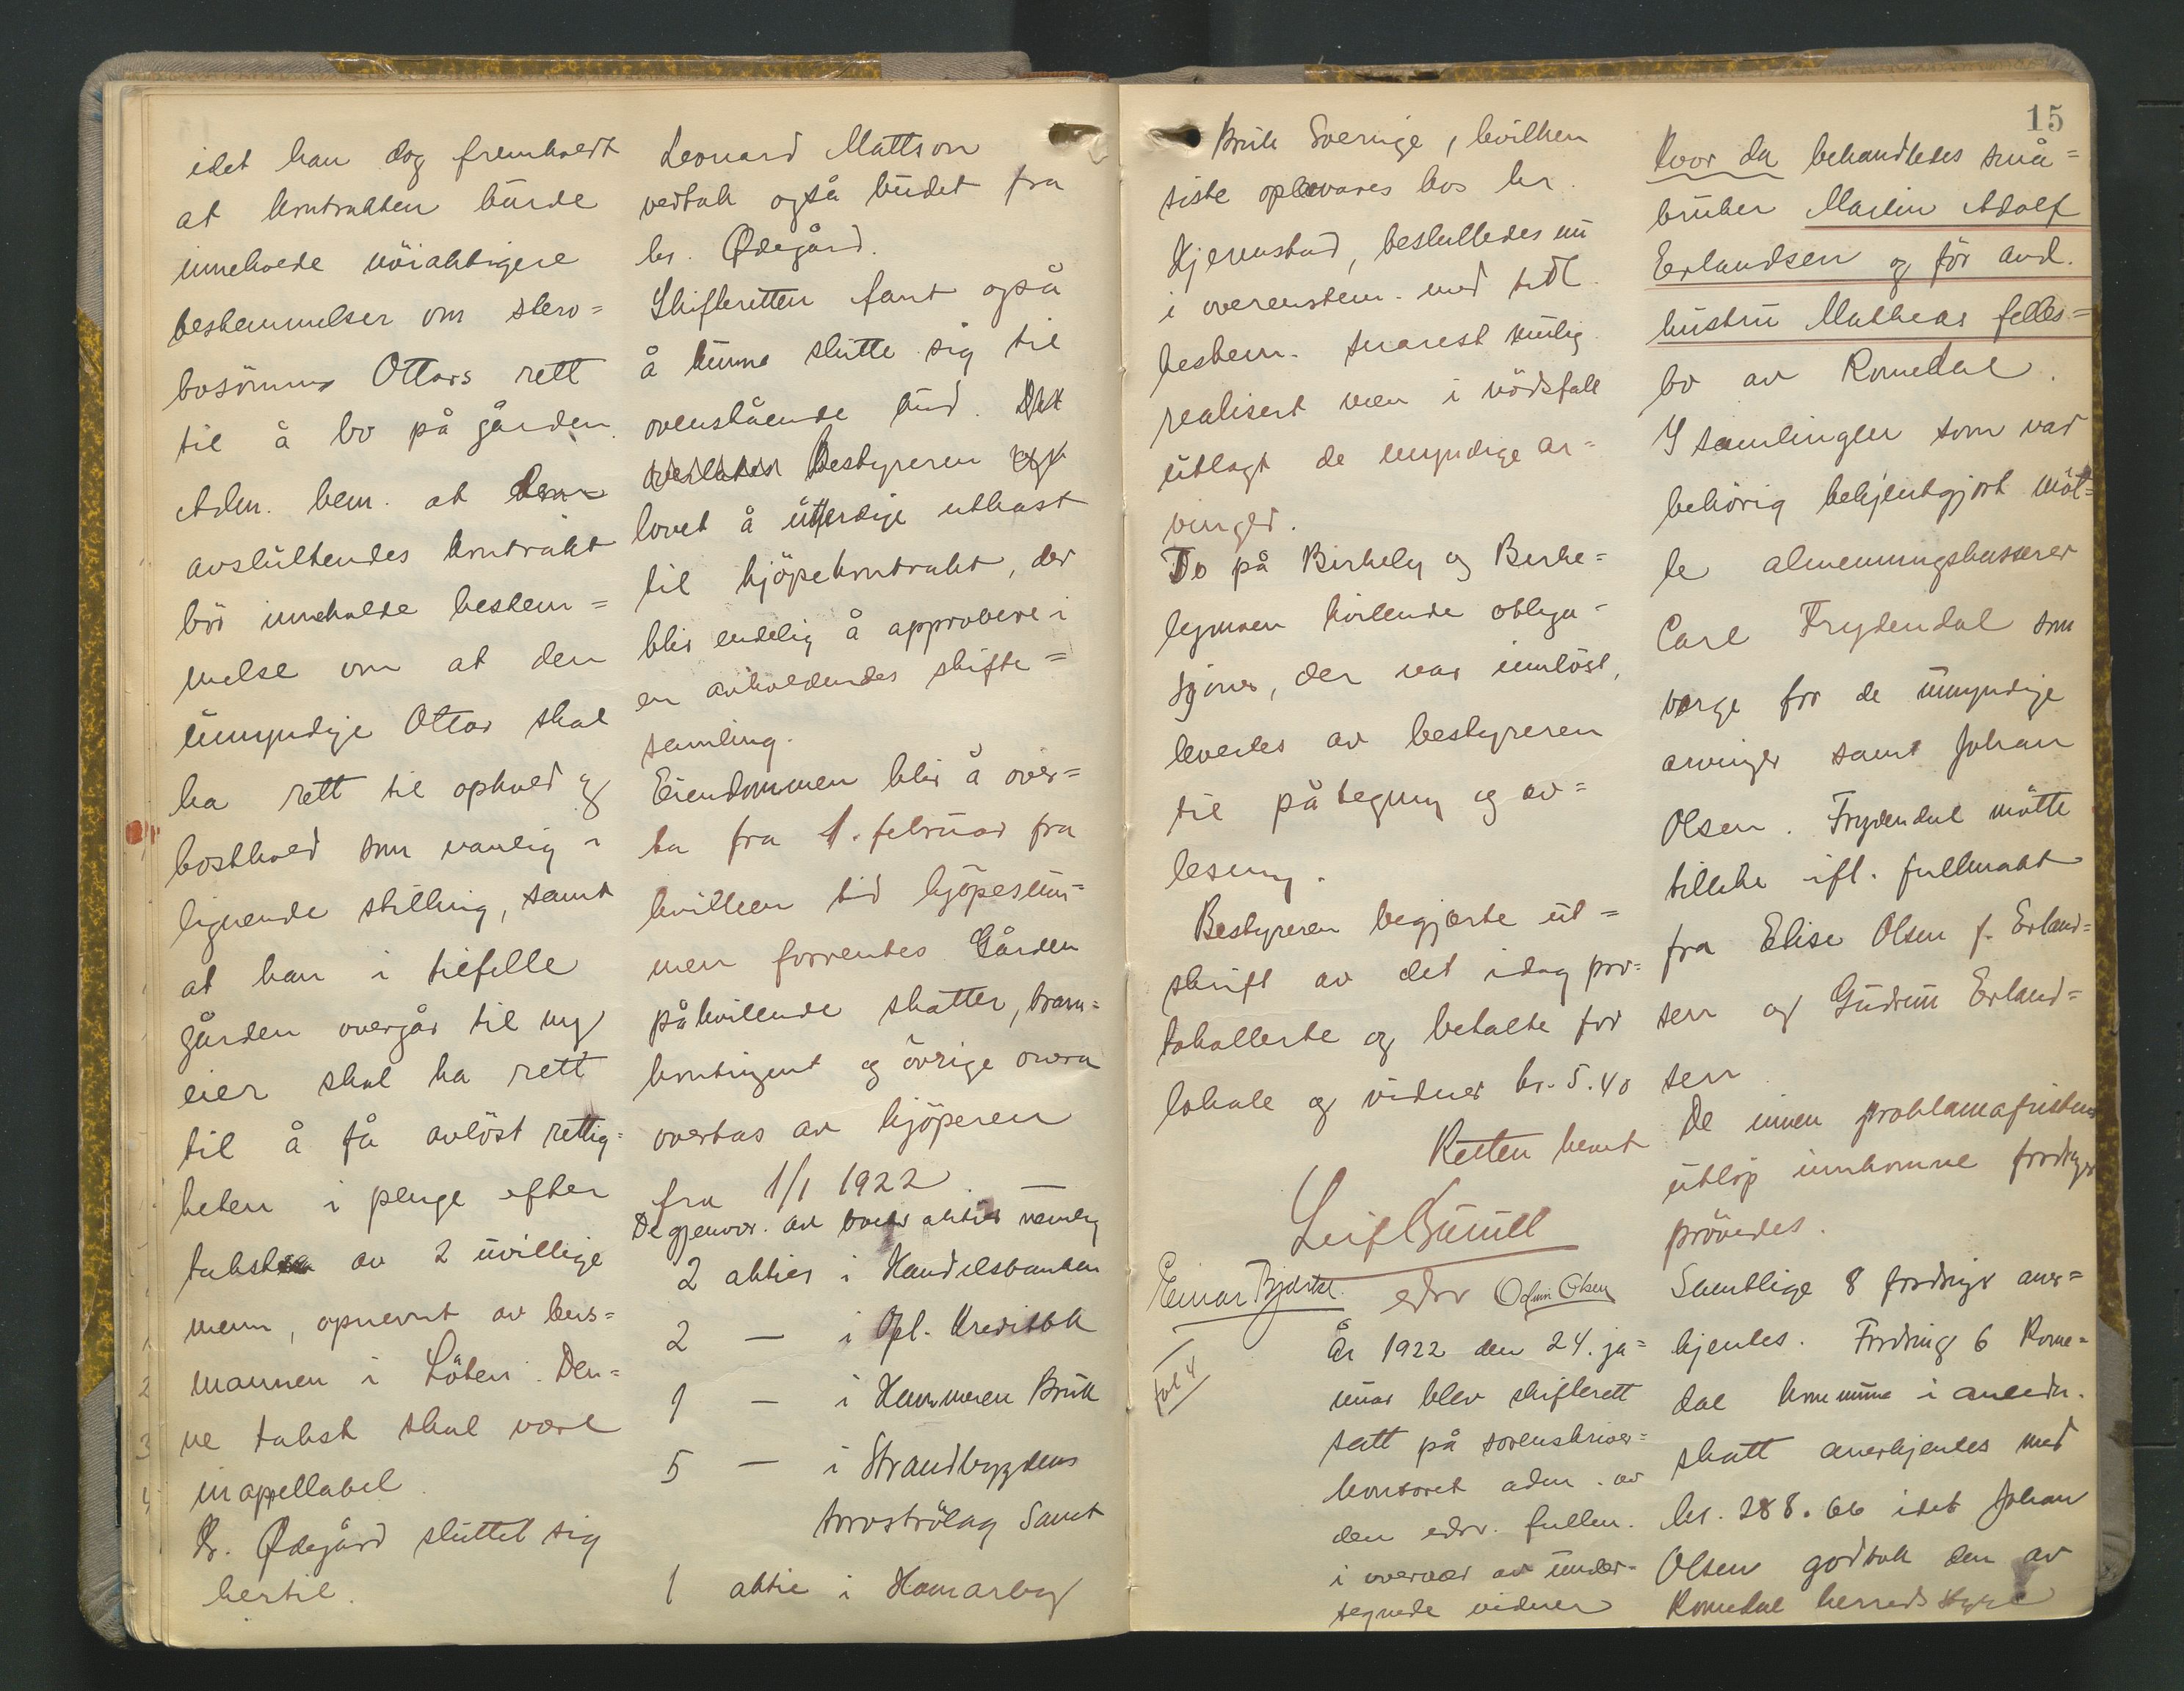 idet han dog fremholdt
at kontrakten burde
inneholde nöiaktigere
bestemmelser om store=
bosönnens Ottars rett
til å bo på gården.
Adm. bem. at
avsluttendes kontrakt
bör inneholde bestem=
melse om at den
umyndige Ottar skal
ha rett til ophold og
kosthold som vanlig i
lignende stilling, samt
at han i tilfelle
gården overgår til ny
eier skal ha rett
til å få avlöst rettig=
heten i penge efter
takst av 2 uvillige
menn, opnevnt av lens=
mannen i Löten. Den=
ne takst skal være
inappellabel.
Hr. Ødegård sluttet sig
hertil.
Leonard Mattson
vedtok også budet fra
hr. Ødegård.
Skifteretten fant også
å kunne slutte sig til
ovenstående bud.
Bestyreren
lovet å utferdige utkast
til kjöpekontrakt, der
blir endelig å approbere i
en avholdendes skifte=
samling.
Eiendommen blir å over=
ta fra 1. februar fra
hvilken tid kjöpesum=
men forrentes. Gården
påhvilende skatter, brann=
kontingent og övrige onera
overtas av kjöperen
fra 1/1 1922.
De gjenvær. av boets aktier nemlig
2 aktier i Handelsbanken
2 — i Opl. Kreditbk
1 — i Hammeren Bruk
5 — i Strandbygdens
torvströlag samt
1 aktie i Hamarby
15
Bruk Sverige, hvilken
siste opbevares hos hr.
Kjernstad, besluttedes nu
i overenstem. med tidl.
bestem. snarest mulig
realisert men i nödsfall
utlagt de myndige ar=
vinger.
To på Birkely og Birke=
lymoen hvilende obliga=
sjoner, der var innlöst,
leverles av bestyreren
til påtegning og av=
lesning.
Bestyreren begjærte ut=
skrift av det idag pro=
tokollerte og betalte for
lokale og vidner kr. 5.40
Retten hevet
Leif Bruuth
Einar Bjørke edsv Odin Olsen
fol 4
År 1922 den 24. ja=
nuar blev skifterett
satt på sorenskriver=
kontoret adm. av
den edsv. fullm.
i overvær av under=
tegnede vidner
Hvor da behandledes små=
bruker Martin Adolf
Erlandsen og før avd.
hustru Matheas felles=
bo av Romedal.
I samlingen som var
behörig bekjentgjort möt=
te almenningskasserer
Carl Frydendal som
verge for de umyndige
arvinger samt Johan
Olsen. Frydendal mötte
tillike ifl. fullmakt
fra Elise Olsen f. Erland=
sen og Gudrun Erland=
sen
De innen proklamafristens
utløp innkomne fordringer
prövedes.
Samtlige 8 fordringer aner=
kjentes. Fordring 6 Rome=
dal kommune i anledn.
skatt anerkjentes med
kr. 288.66 idet Johan
Olsen godtok den av
Romedal herredsstyre